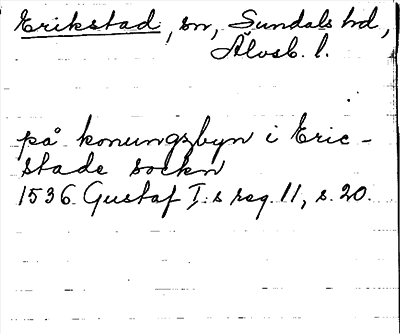 Erikstad, sn, Sundals hd,
Älvsb. l.
på konungzbyn i Eric-
stade sockn
1536. Gustaf I:s reg. 11, s. 20.